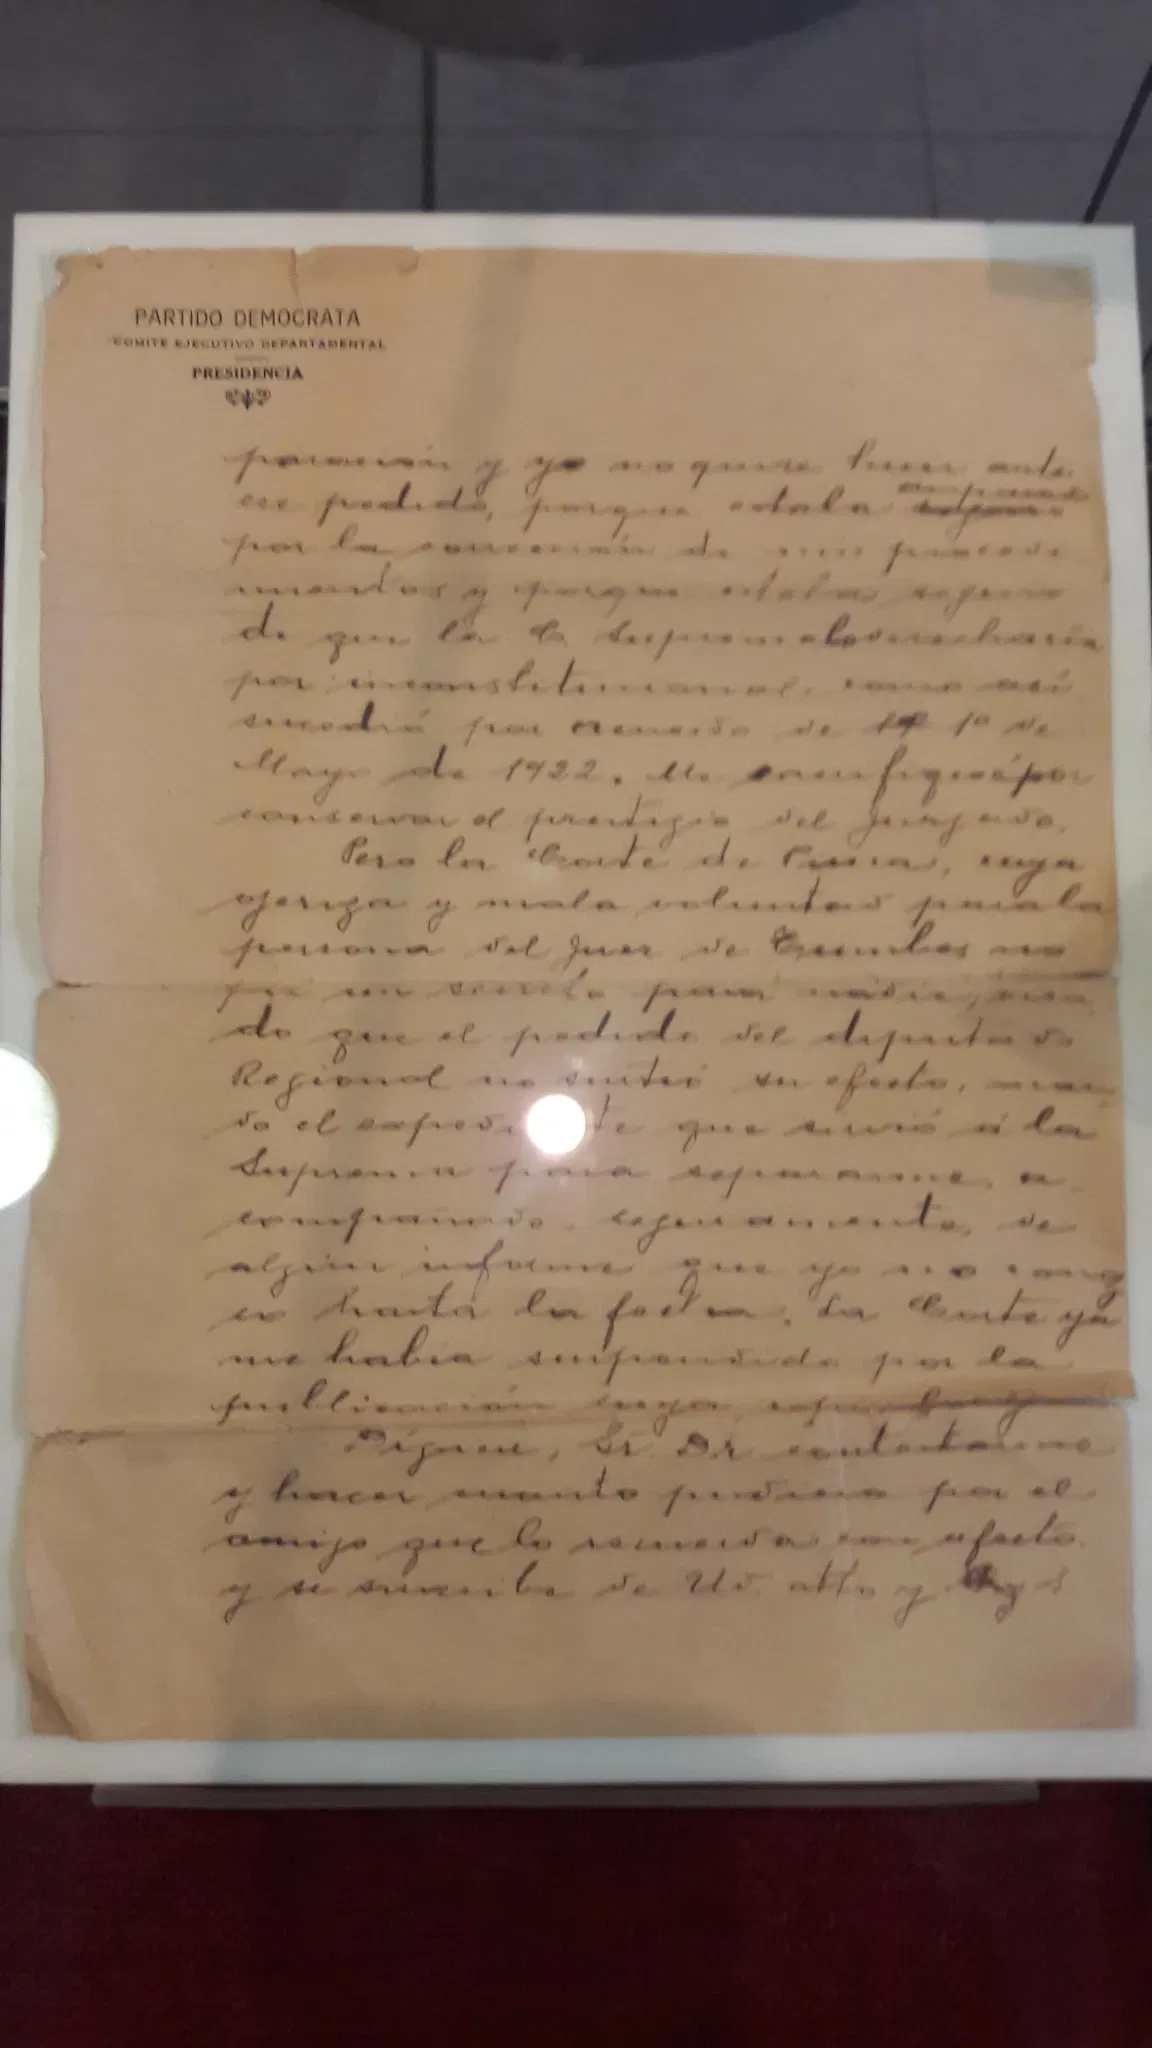 PARTIDO DEMOCRATA
COMITE EJECUTIVO DEPARTAMENTAL
PRESIDENCIA
paración y yo no quise hacer ante
ese pedido, porque estaba amparado
por la corrección de mis procedi
mientos y porque estaba seguro
de que la C. Suprema lo desecharía
por inconstitucional, como así
sucedió por acuerdo de 1º de
Mayo de 1922. Me sacrifiqué por
conservar el prestigio del Juzgado.
Pero la Corte de Piura, cuya
ojeriza y mala voluntad para la
persona del Juez de Tumbes no
fue un secreto para nadie,
do que el pedido del diputado
Regional no surtió su efecto,
do el expediente que sirvió á la
Suprema para separarme, a
compañado, seguramente, de
algún informe que yo no conoz
co hasta la fecha. La Corte ya
me había suspendido por la
publicación cuya
Dígnese, Sr. Dr contestarme
y hacer cuanto pudiera por el
amigo que lo recuerda con afecto
y se suscribe de Ud. atto y S